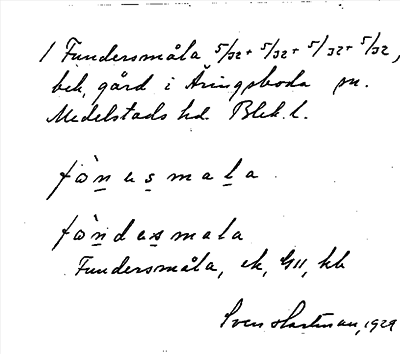 1 Fundersmåla 5/32 + 5/32 + 5/32 + 5/32,
bek. gård i Åringsboda sn.
Medelstads hd. Blek. l.
fònesmala
fòndesmala
Fundersmåla, ek, GII, kb
Sven Hartman, 1929